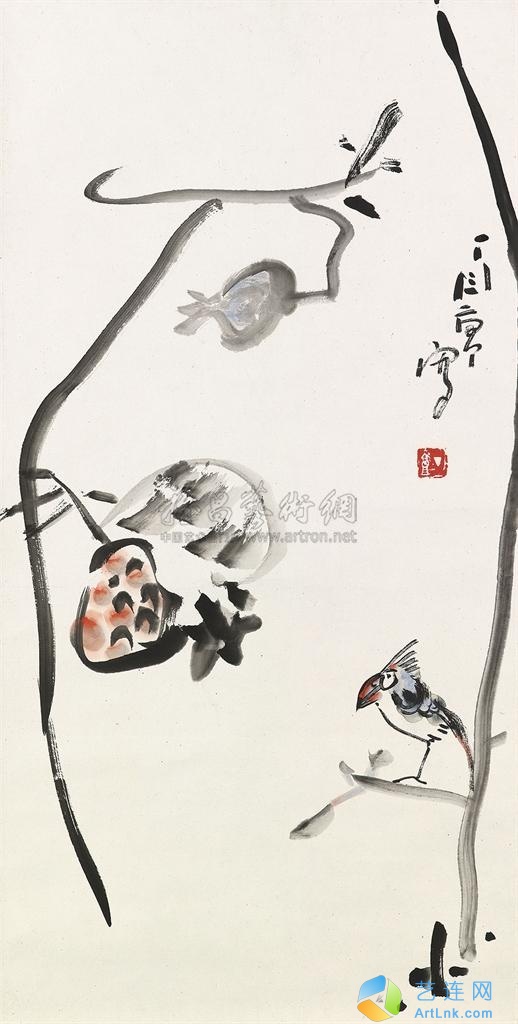 丁衍庸寫
雅昌藝術網
www.artron.net
艺连网
ArtLnk.com